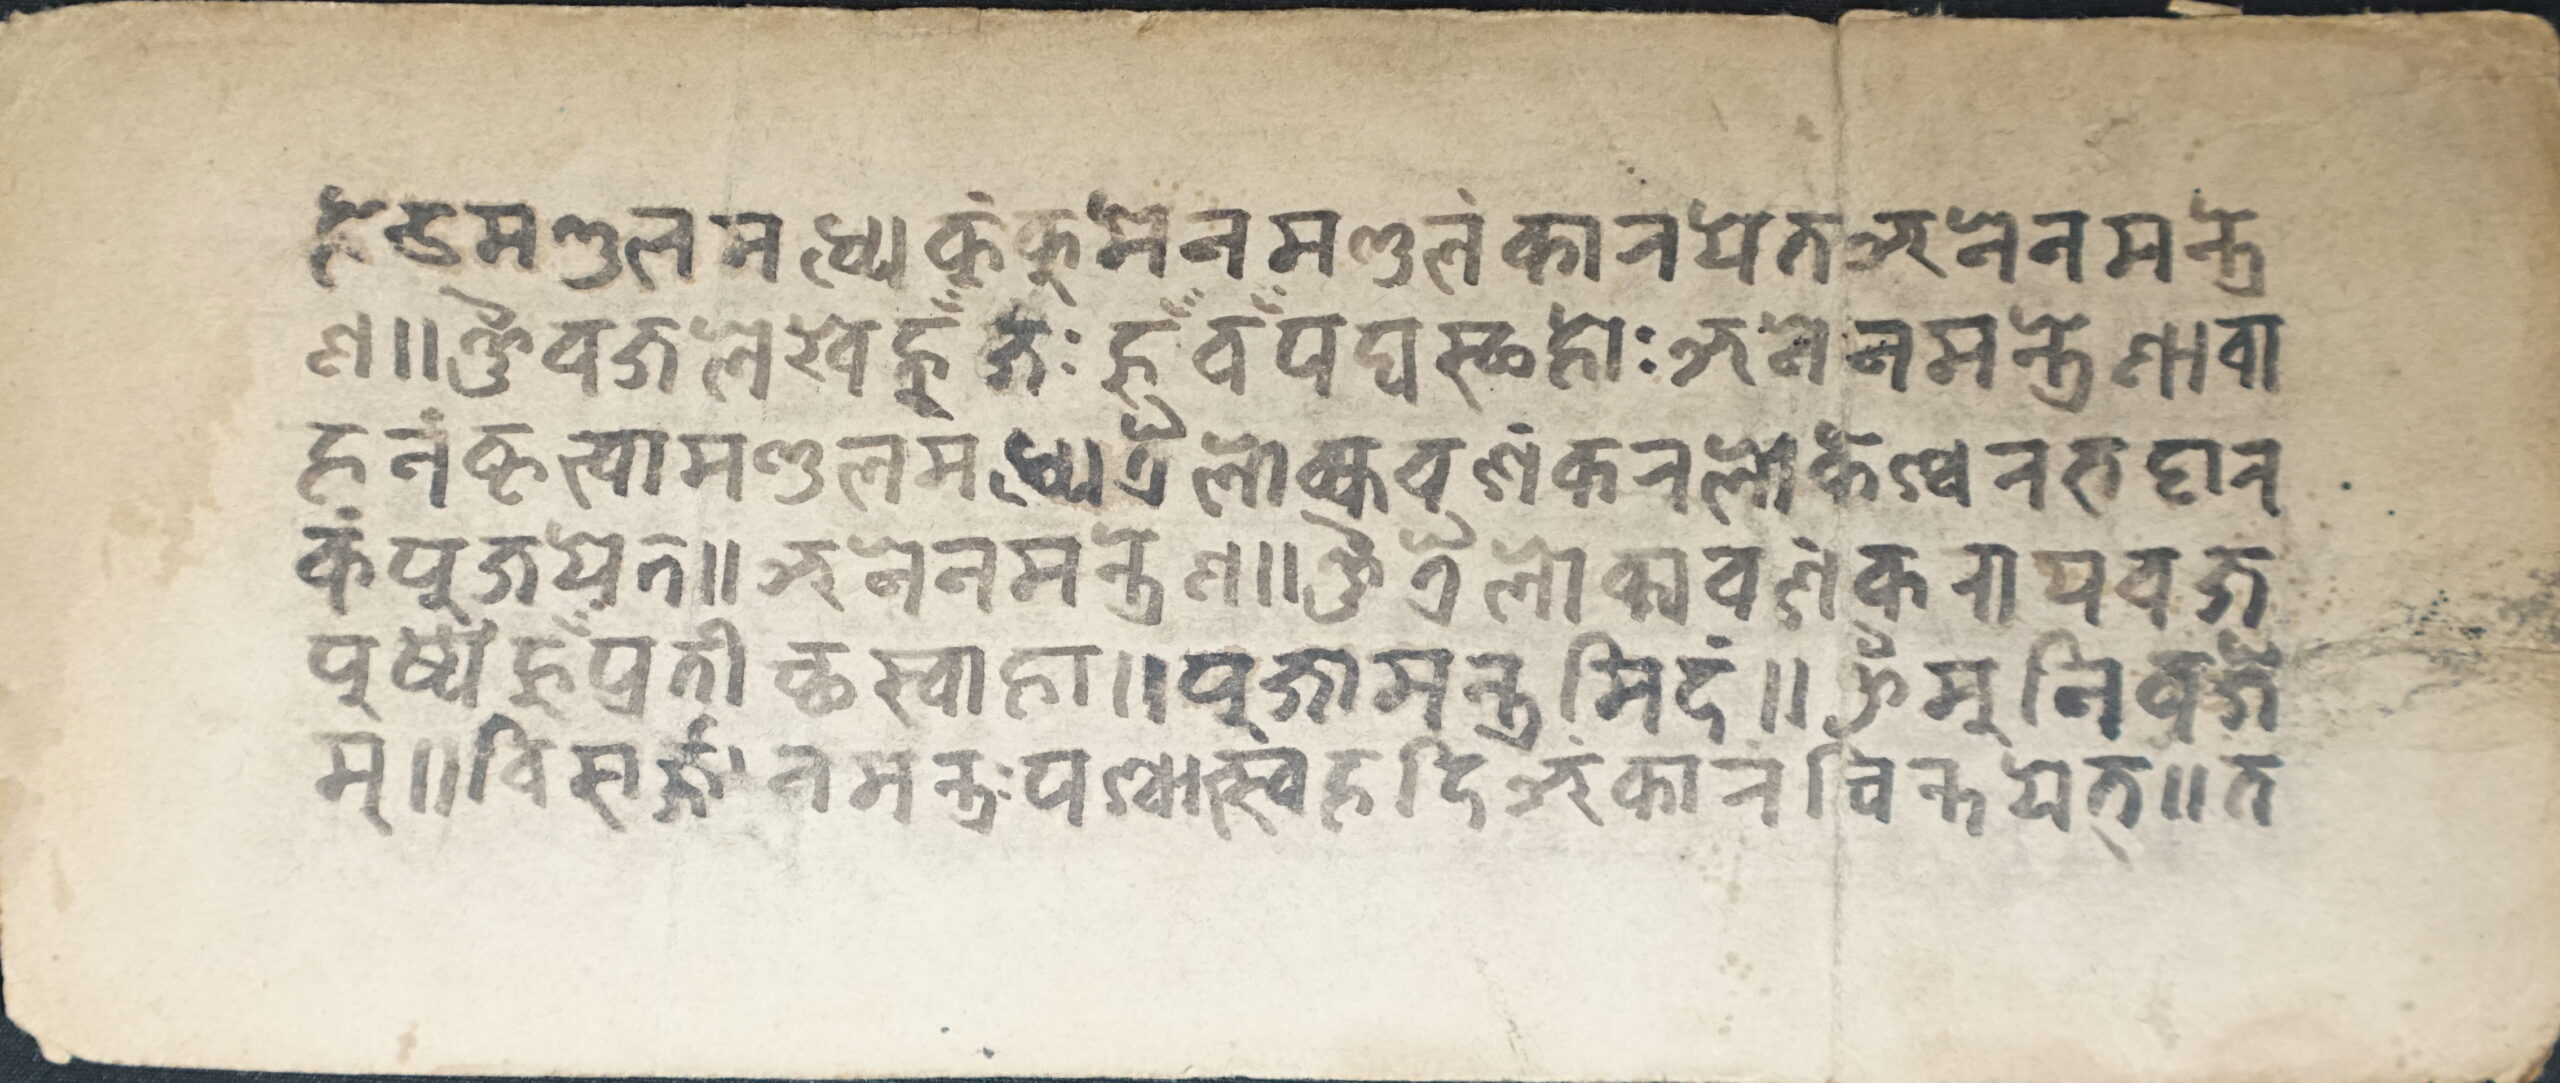 हेडमण्डलमध्ये कुंकुमेनमण्डलंकारयेतअनेनमन्त्रे
ण॥ॐवज्रलेखेहूँजः हूँवँपद्मस्छहोःअनेनमन्त्रेणावा
हनंकृत्वामण्डलमध्येत्रैलोक्यवशंकरलोकेश्वरभट्टार
कंपुजयेत॥अनेनमन्त्रेण॥ॐत्रैलोक्यवशंकरायवज्र
पुष्पंहूँप्रतीच्छस्वाहा॥पुजामन्त्रमिदं॥ॐमुनिवज्रे
मु॥विसर्ज्जनमन्त्रःपश्चात्स्वंहृदिअंकारंचिन्तयेत्॥त